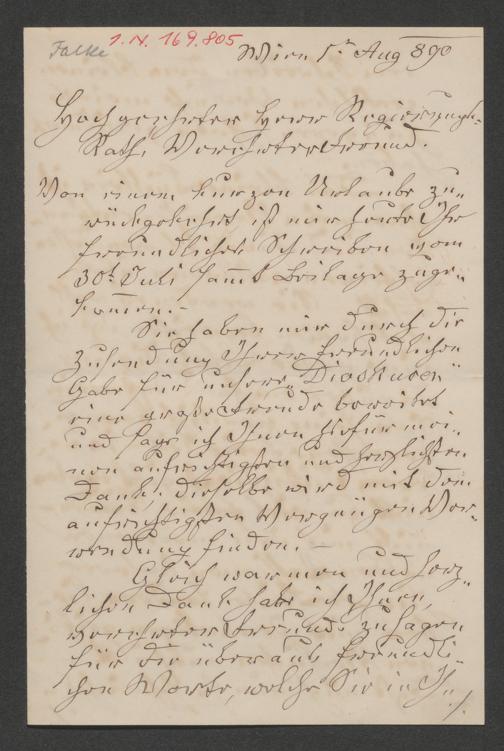 Falke
I.N. 169.805
Wien 1t Aug 890
Hochgeehrter Herr Regierungs-
Rath, Verehrter Freund.
Von einem kurzen Urlaube zu-
rückgekehrt ist mir heute Ihr
freundliches Schreiben vom
30t Juli sammt Beilage zuge-
kommen.-
Sie haben mir durch die
Zusendung Ihrer freundlichen
Gabe für unsere „Dioskuren"
eine große Freude bereitet
und sage ich Ihnen hiefür mei-
nen aufrichtigsten und herzlichsten
Dank, dieselbe wird mit dem
aufrichtigsten Vergnügen Ver-
wendung finden. -
Gleich warmen und herz-
lichen Dank habe ich Ihnen,
verehrter Freund zu sagen
für die überaus freundli-
chen Worte, welche Sie in Ih-
./.